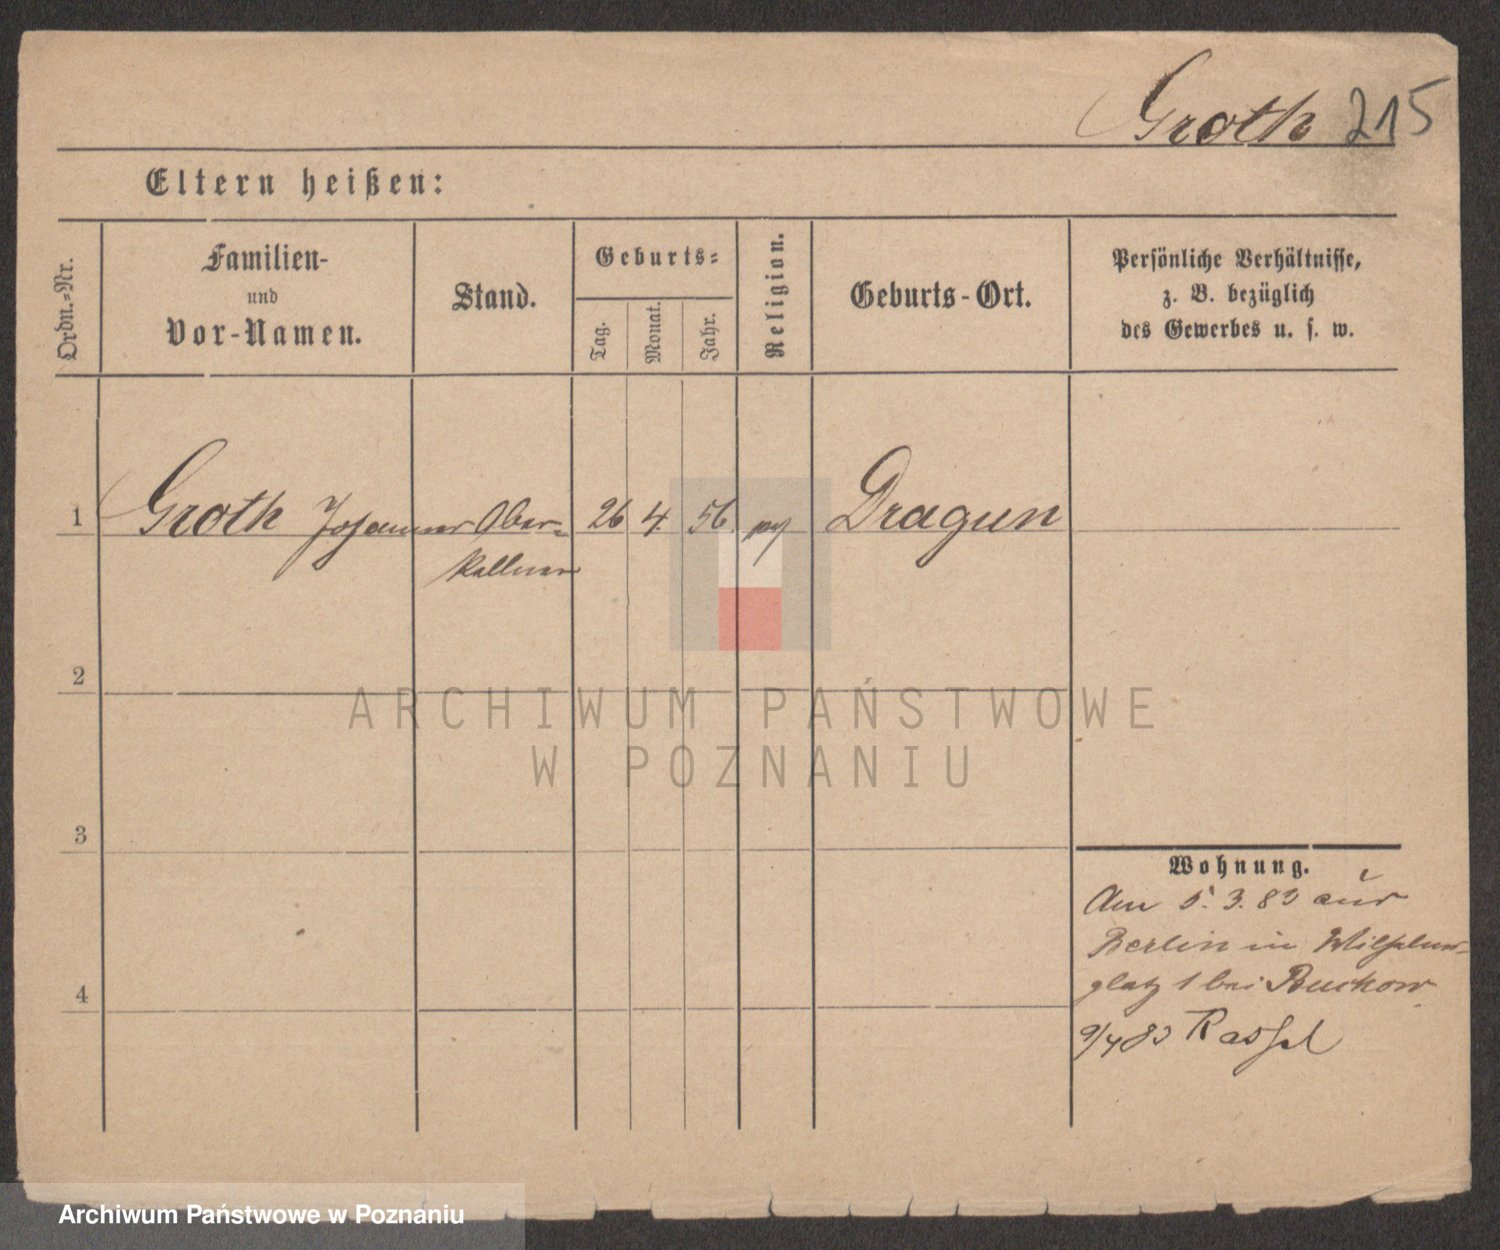 Groth 215
Eltern heißen:
Ordn.-Nr.
Familien-
und
Vor-Namen.
Stand.
Geburts-
Tag.
Monat.
Jahr.
Religion.
Geburts-Ort.
Persönliche Verhältnisse,
z. B. bezüglich
des Gewerbes u. s. w.
1 Groth Johannes Ober- 26 4. 56 Dragun
kellner
2
3
4
Wohnung.
Am 5. 3. 83 aus
Berlin in Wilhelms-
platz 1 bei Buckow
9/4 83 Kassel
ARCHIWUM PAŃSTWOWE
W POZNANIU
Archiwum Państwowe w Poznaniu